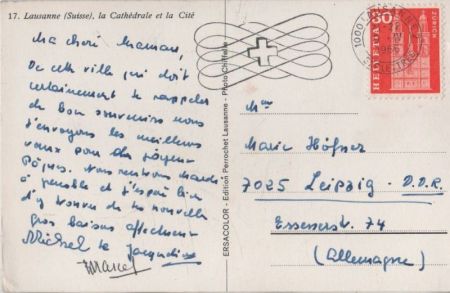 17. Lausanne (Suisse), la Cathédrale et la Cité
Ma chère Maman,
De cette ville qui doit
certainement te rappeler
de bon souvenirs nous
t'envoyons les meilleurs
vœux pour de joyeuses
Pâques. Nous rentrons mardi
à et j'espère bien
d'y trouver de tes nouvelles
Gros baisers affectueux
Michel et Jacqueline
Marcel
ERSACOLOR - Edition Perrochet Lausanne - Photo Chiffelle
30
HELVETIA
ZÜRICH
1000 LAUSANNE
Mme
Marie Höfner
7025 Leipzig - D.D.R.
Essenerstr. 74
(Allemagne)